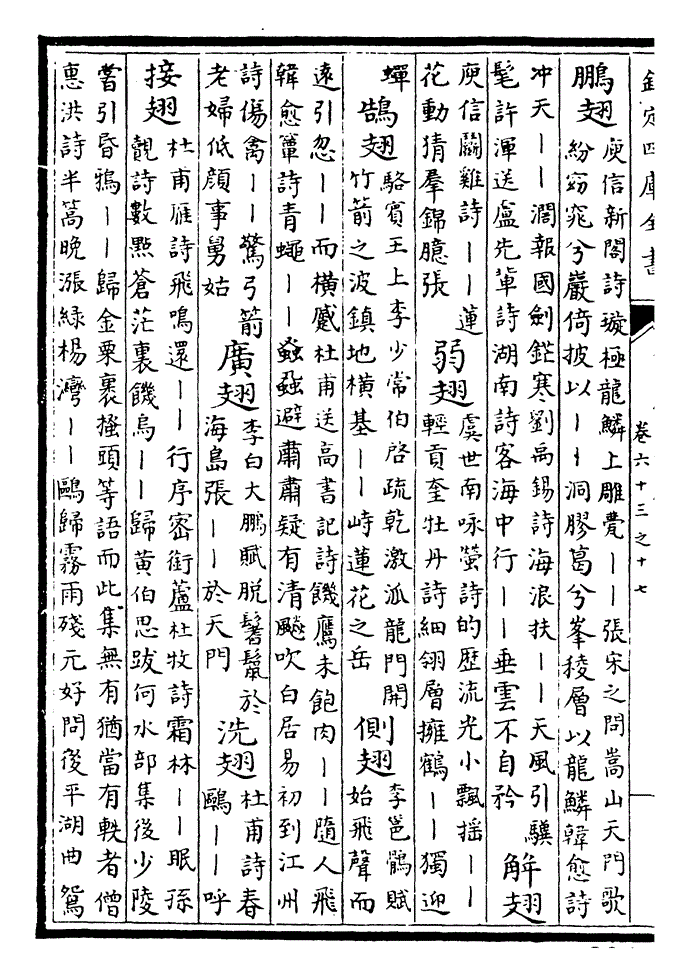 欽定四庫全書
卷六十三之十七
鵬翅
庾信新閣詩璇極龍鱗上雕甍丨丨張宋之問嵩山天門歌
紛窈窕兮巖倚披以丨丨洞膠葛兮峯稜層以龍鱗韓愈詩
冲天丨丨濶報國劍鋩寒劉禹錫詩海浪扶丨丨天風引驥
髦許渾送盧先軰詩湖南詩客海中行丨丨垂雲不自矜
解翅
庾信鬭雞詩丨丨蓮
花動猜羣錦臆張
弱翅
虞世南咏螢詩的歴流光小飄揺丨丨
輕貢奎牡丹詩細翎層擁鶴丨丨獨迎
蟬
鵠翅
駱賓王上李少常伯啓疏乾激派龍門開
竹箭之波鎮地横基丨丨峙蓮花之岳
側翅
李邕鶻賦
始飛聲而
逺引忽丨丨而横蹙杜甫送高書記詩饑鷹未飽肉丨丨隨人飛
韓愈簟詩青蠅丨丨蚤蝨避肅肅疑有清飈吹白居易初到江州
詩傷禽丨丨驚弓箭
老婦低顔事舅姑
廣翅
李白大鵬賦脱鬐鬛於
海島張丨丨於天門
洗翅
杜甫詩春
鷗丨丨呼
接翅
杜甫雁詩飛鳴還丨丨行序密銜蘆杜牧詩霜林丨丨眠孫
覿詩數點蒼茫裏饑烏丨丨歸黄伯思跋何水部集後少陵
嘗引昏鴉丨丨歸金粟裹搔頭等語而此集無有猶當有軼者僧
惠洪詩半篙晩漲緑楊灣丨丨鷗歸霧雨殘元好問後平湖曲鴛